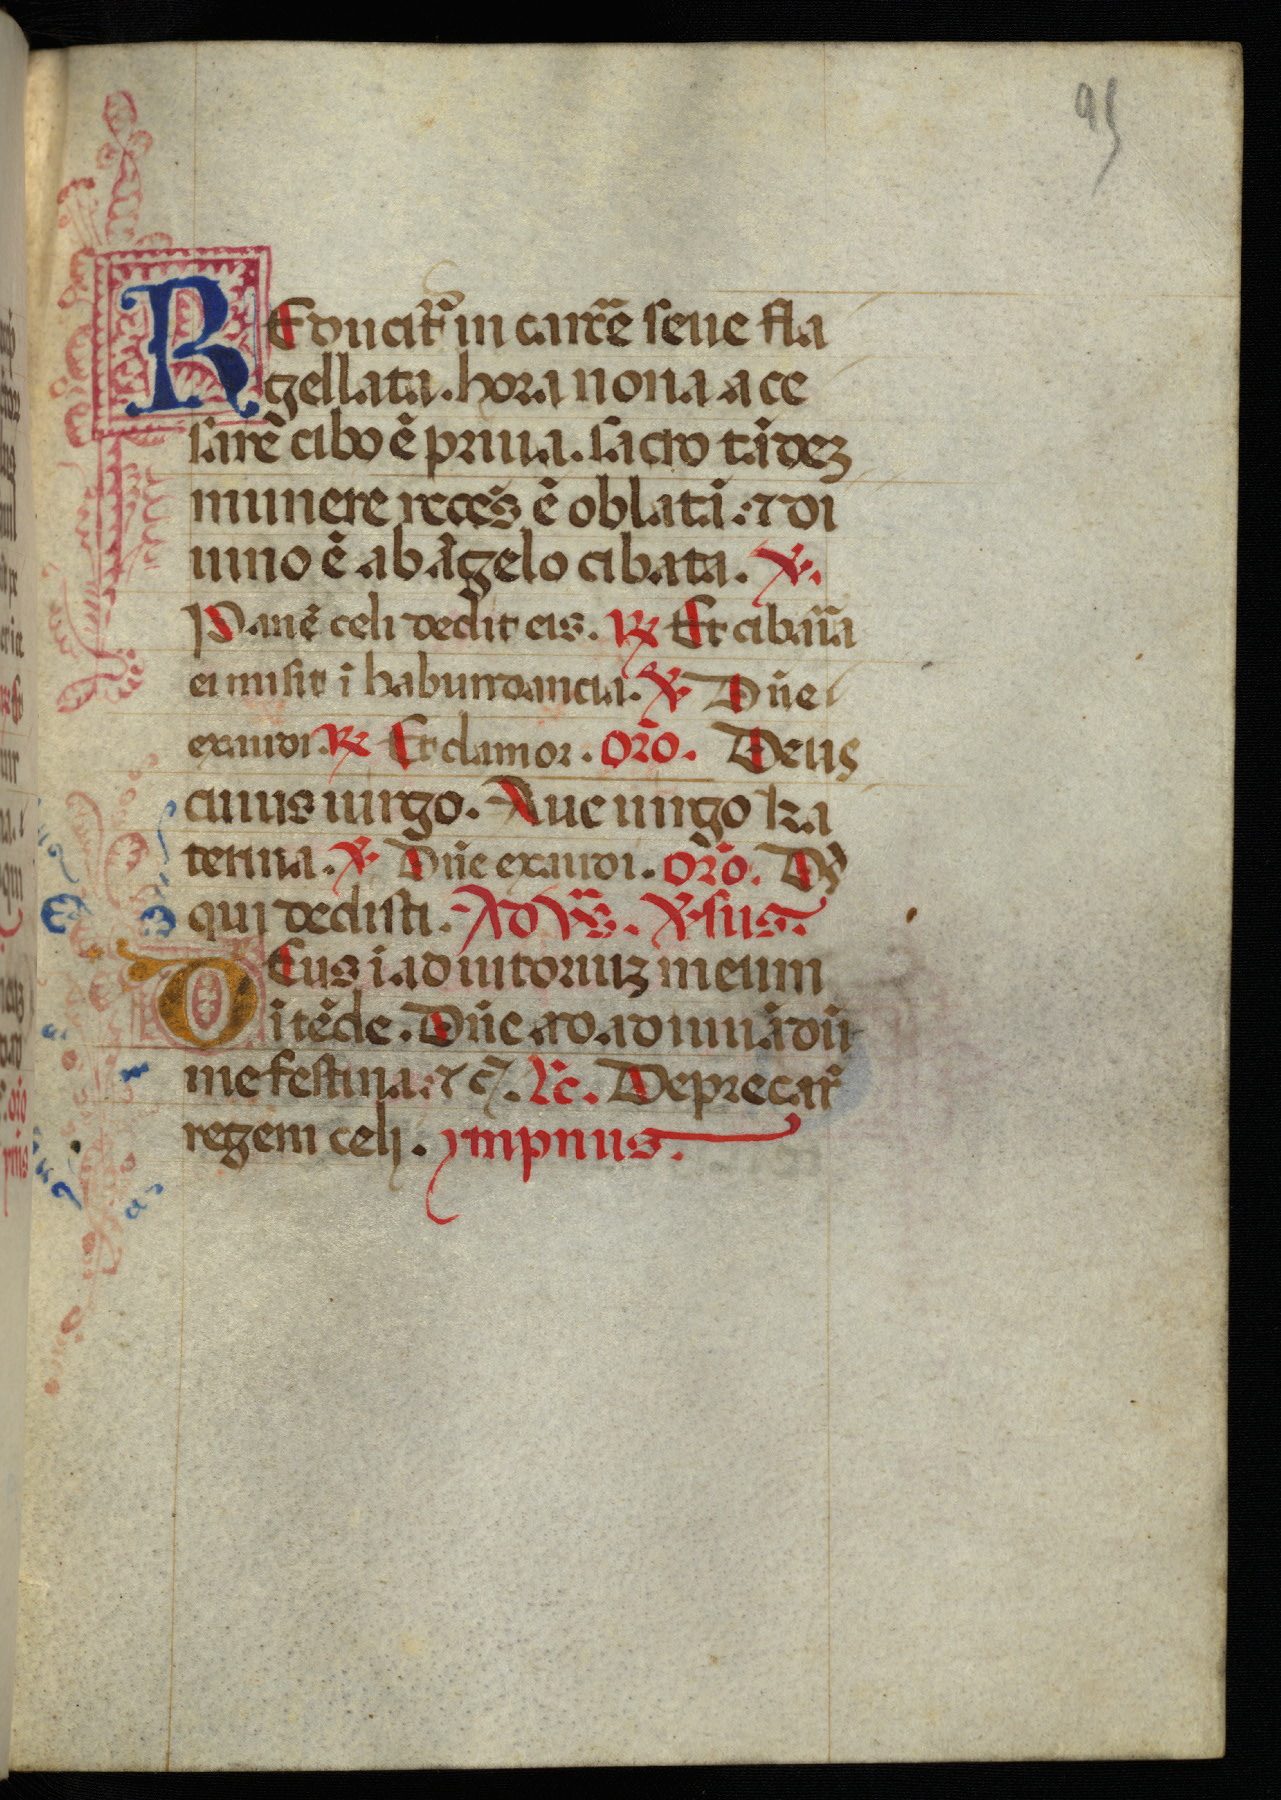 95
REducit᷑ in carcē seue fla
gellata. hora nona a ce
sarē cibo ē priua. sacro tādeʒ
munere reces̄ ē oblati. ⁊ di
uino ē ab āgelo cibata. ℣.
Panē celi dedit eis. ℟ Et cibar̄ia
ei misit ī habundancia. ℣ Dn̄e
exaudi. ℟ Et clamor. Or̄o. Deus
cuius uirgo. Aue uirgo ka
terina. ℣ Dn̄e exaudi. Or̄o. Ds̄
qui dedisti. Ad vs̄. ℣sus.
DEus ī adiutoriuʒ meum
ītēde. Dn̄e ad adiuuādū
me festina. ⁊ c̄. Yc̄. Deprecar̄
regem celi. ympnus.